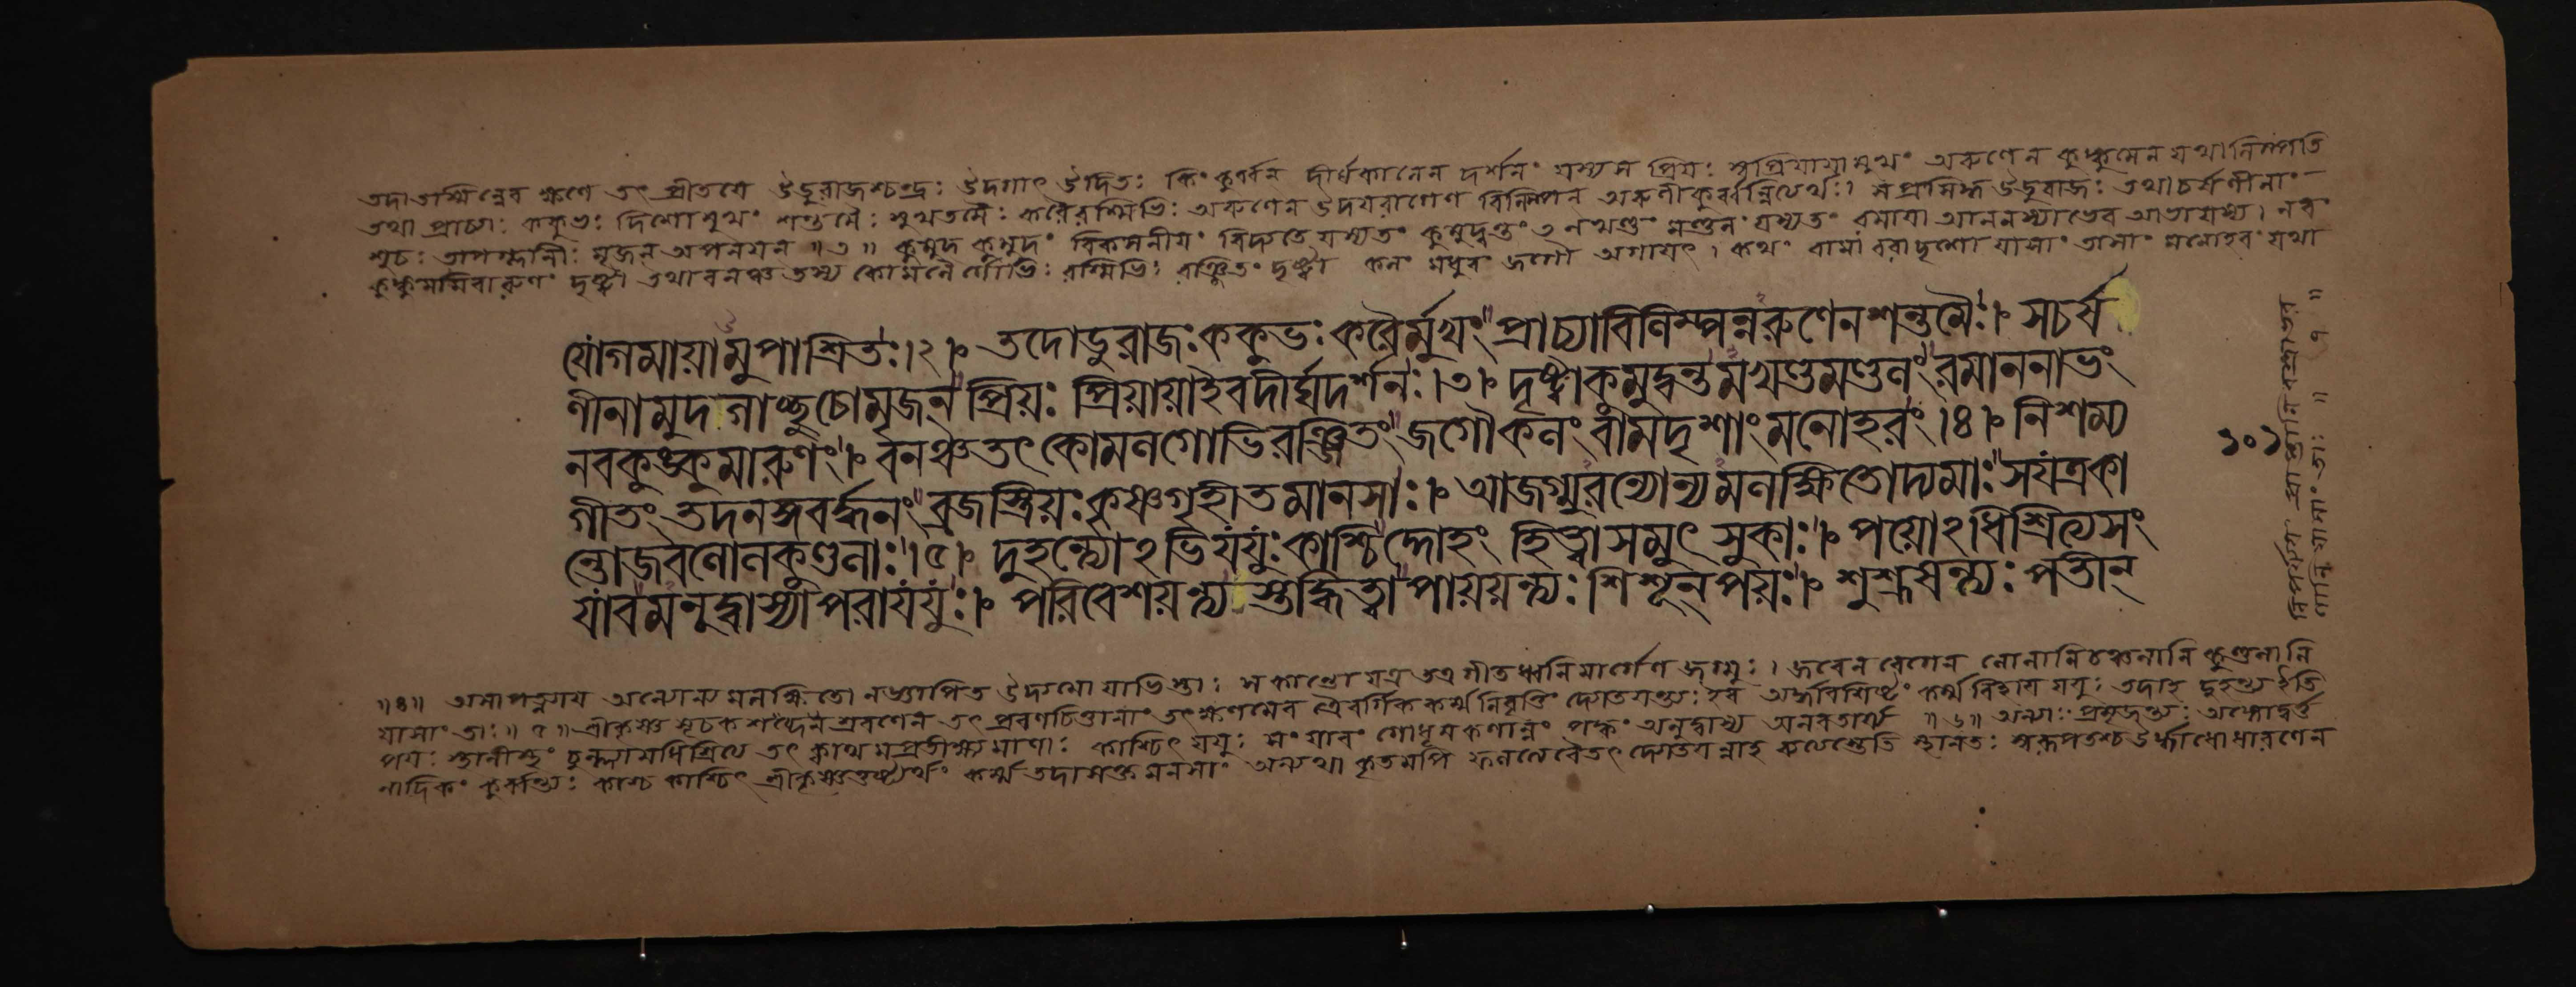 তদা তস্মিন্নেব ক্ষণে তৎ প্রীতয়ে উডুরাজশ্চন্দ্রঃ উদগাৎ উদিতঃ কিং কুর্ব্বন দীর্ঘকালেন দর্শনং যস্য স প্রিয়ঃ স্বপ্রিয়ায়া মুখং অরুণেন কুঙ্কুমেন যথা বিলিম্পতি
তথা প্রাচ্যাঃ ককুভঃ দিশো মুখং শন্তমৈঃ সুখতমৈঃ করৈরশ্মিভিঃ অরুণেন উদয়রাগেণ বিলিম্পন অরুণীকুর্ব্বন্নিত্যর্থঃ। স প্রসিদ্ধ উডুরাজঃ তথা চর্ষণীনাং
শুচঃ তাপগ্লানীঃ মৃজন অপনয়ন ॥৩॥ কুমুদ কুমুদং বিকসনীয়ং বিদ্যতে যস্য তং কুমুদ্বন্তং অখণ্ডং মণ্ডলং যস্য তং রমায়া আননস্যাভেব আভা যস্য। নব
কুঙ্কুমমিবারুণং দৃষ্ট্বা তথা বনঞ্চ তস্য কোমলৈর্গোভিঃ রশ্মিভিঃ রঞ্জিতং দৃষ্ট্বা কলং মধুরং জগৌ অগায়ৎ। কথং বামা বরা দৃশো যাসাং তাসাং মনোহরং যথা
যোগমায়ামুপাশ্রিতঃ।২।৮ তদোডুরাজঃ ককুভঃ করৈর্মুখং প্রাচ্যা বিলিম্পন্নরুণেন শন্তমৈঃ।৮ স চর্ষ
ণীনামুদগাচ্ছুচো মৃজন্ প্রিয়ঃ প্রিয়ায়া ইব দীর্ঘদর্শনঃ।৩।৮ দৃষ্ট্বা কুমুদ্বন্তমখণ্ডমণ্ডলং রমাননাভং
নবকুঙ্কুমারুণং।৮ বনঞ্চ তৎ কোমলগোভিরঞ্জিতং জগৌ কলং বামদৃশাং মনোহরং।৪।৮ নিশম্য
গীতং তদনঙ্গবর্দ্ধনং ব্রজস্ত্রিয়ঃ কৃষ্ণগৃহীতমানসাঃ।৮ আজগ্মুরন্যোন্যমলক্ষিতোদ্যমাঃ স যত্র কা
ন্তো জবলোলকুণ্ডলাঃ।৫।৮ দুহন্ত্যোঽভিযযুঃ কাশ্চিদ্দোহং হিত্বা সমুৎসুকাঃ।৮ পয়োঽধিশ্রিত্য সং
যাবমনুদ্বাস্যাপরা যযুঃ।৮ পরিবেশয়ন্ত্যস্তদ্ধিত্বা পায়য়ন্ত্যঃ শিশূন্ পয়ঃ।৮ শুশ্রূষন্ত্যঃ পতীন্
১০১
॥৪॥ অন্যোন্যমলক্ষিতো ন জ্ঞাপিত উদ্যমো যাভিস্তাঃ স কান্তো যত্র তত্র গীতধ্বনিমার্গেণ জগ্মুঃ। জবেন বেগেন লোলানি চঞ্চলানি কুণ্ডলানি
যাসাং তাঃ॥৫॥ শ্রীকৃষ্ণসূচকশব্দেন শ্রবণেন তৎপ্রবণচিত্তানাং তৎক্ষণমেব ত্রৈবর্গিককর্ম্মনিবৃত্তিং দ্যোতয়ন্ত্যঃ কর্ম্ম বিহায় যযুঃ তদাহ দুহন্ত্য ইতি
পয়ঃ স্থালীস্থং চুল্ল্যামধিশ্রিত্য তৎ ক্বাথমপ্রতীক্ষ্যমাণাঃ কাশ্চিৎ যযুঃ সংযাবং গোধূমকণান্নং পক্বং অনুদ্বাস্য অনবতার্য্য ॥৬॥
নাদিকং কুর্ব্বন্ত্যঃ কাশ্চ কাশ্চিৎ শ্রীকৃষ্ণতুষ্ট্যর্থং কর্ম্ম তদাসক্তমনসাং অন্যথা কৃতমপি